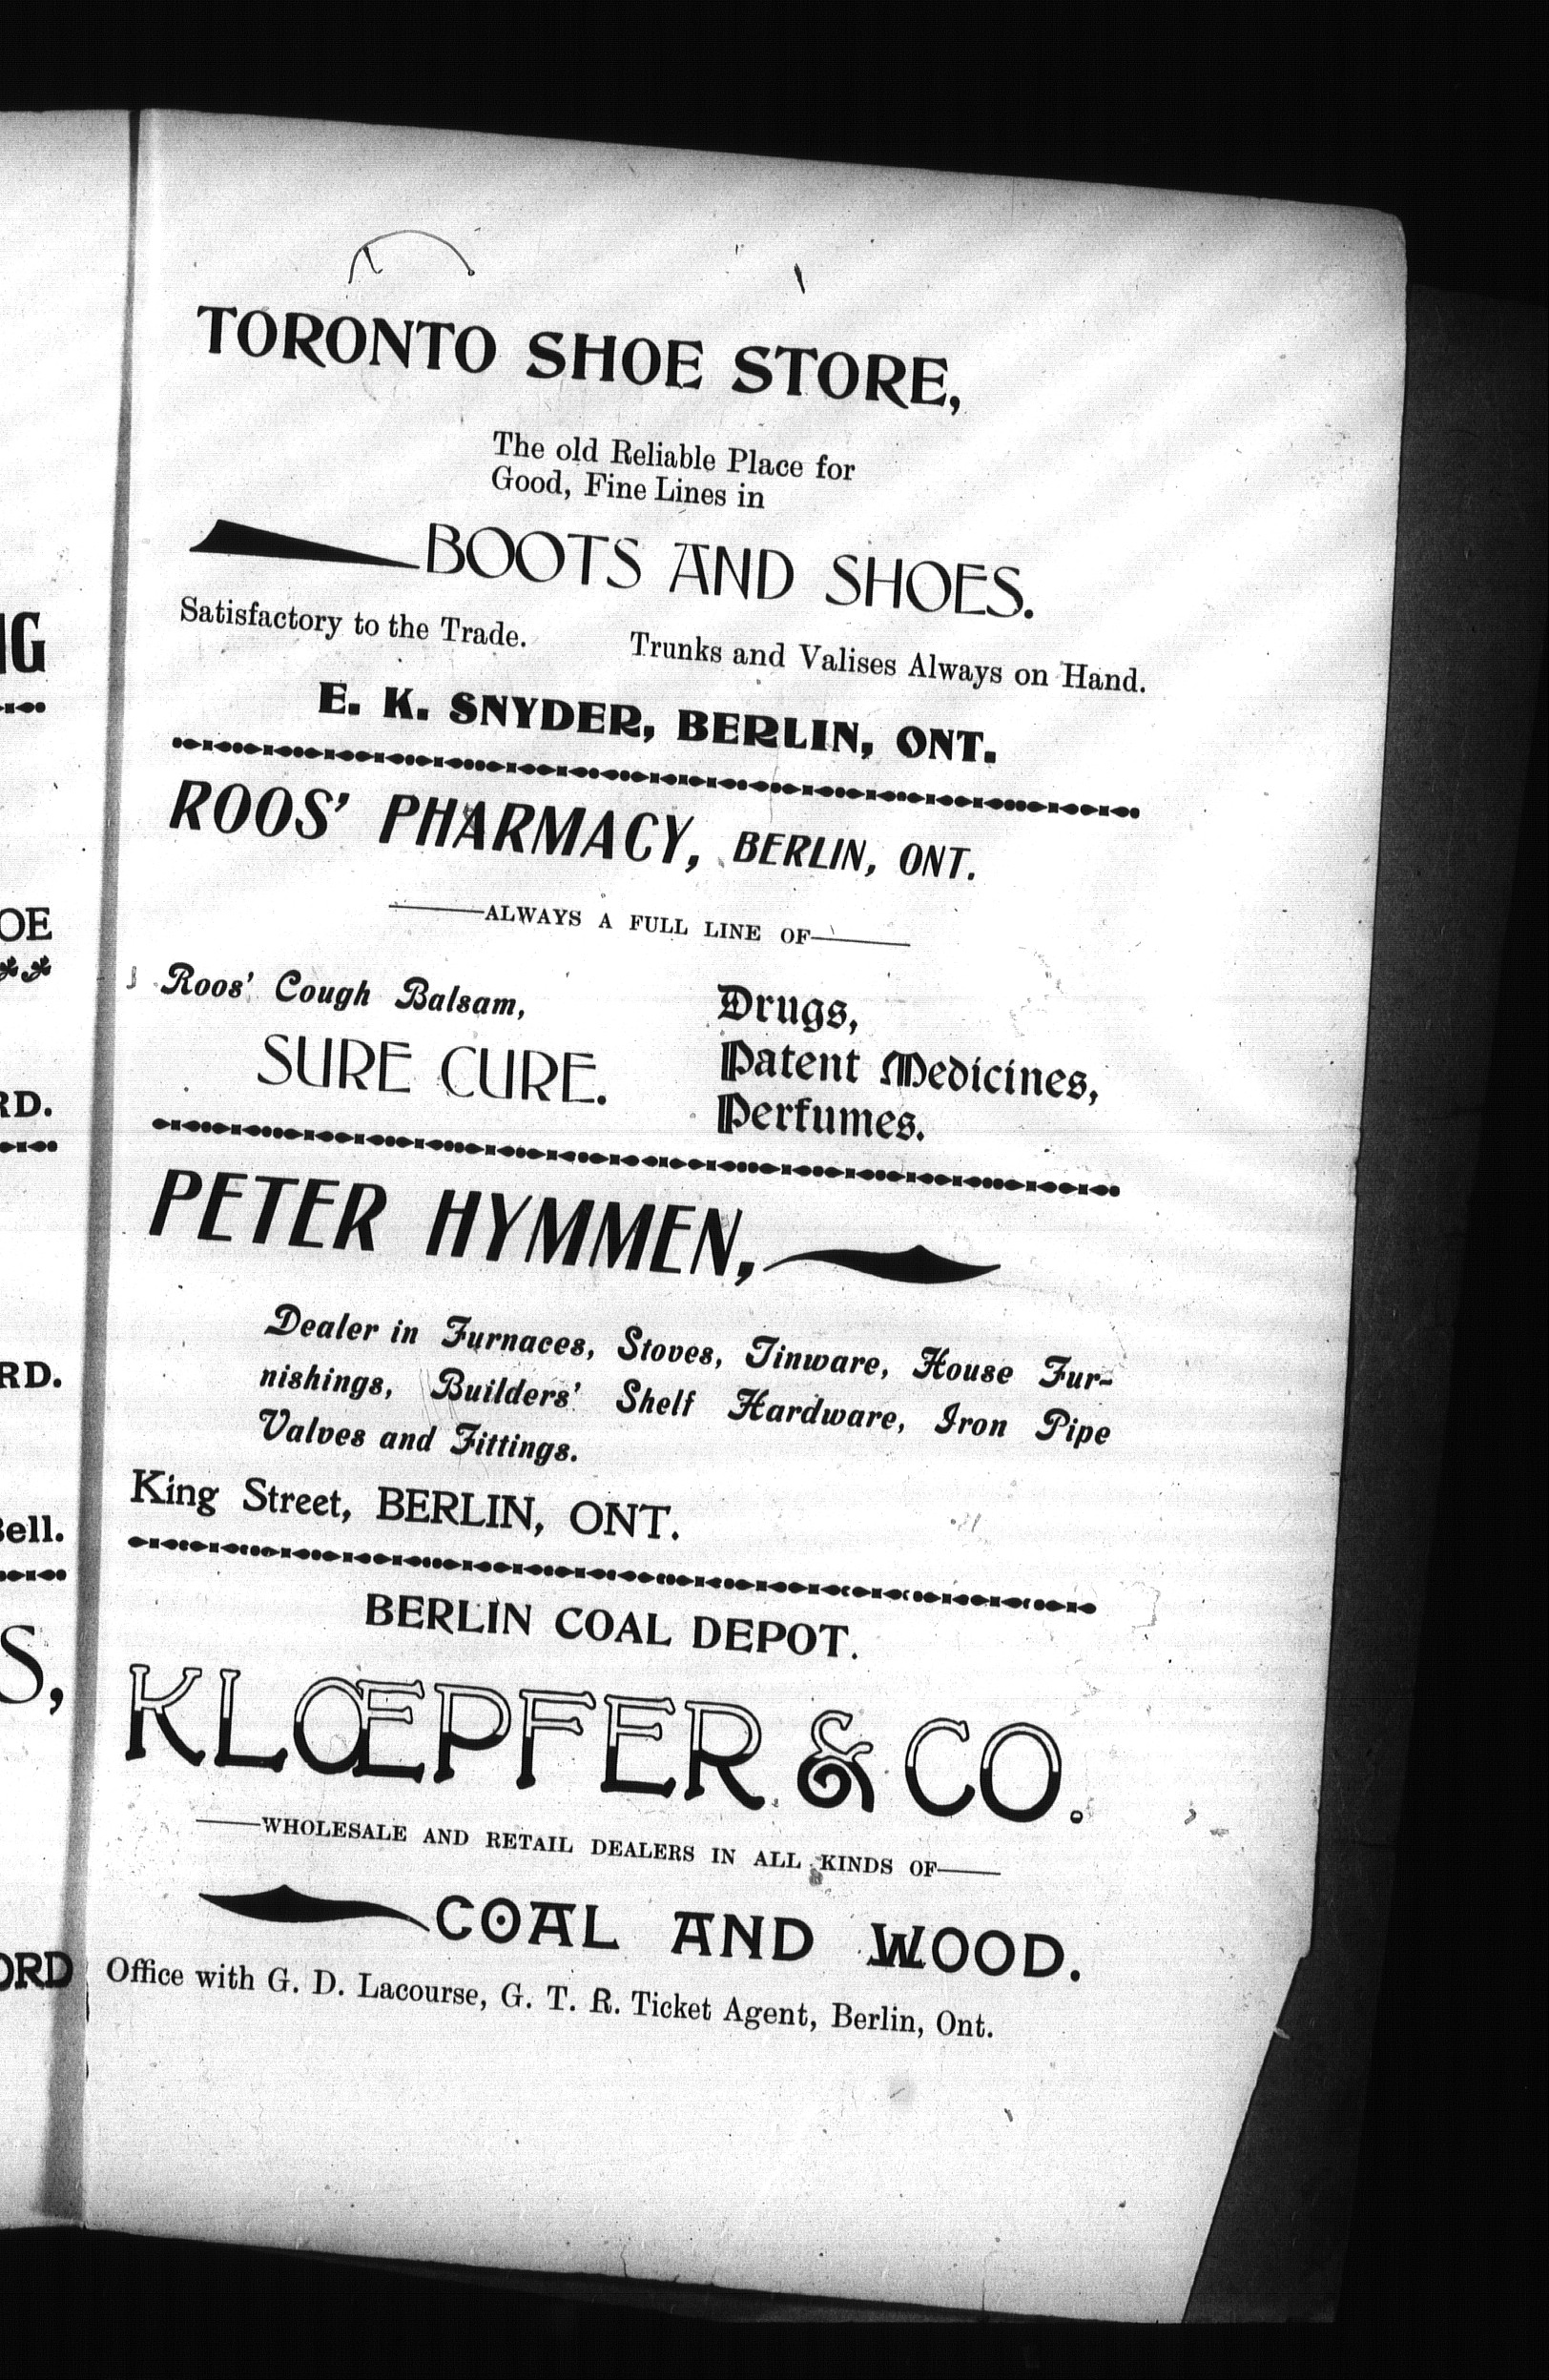 TORONTO SHOE STORE,
The old Reliable Place for
Good, Fine Lines in
BOOTS AND SHOES.
Satisfactory to the Trade. Trunks and Valises Always on Hand.
E. K. SNYDER, BERLIN, ONT.
ROOS' PHARMACY, BERLIN, ONT.
ALWAYS A FULL LINE OF
Roos' Cough Balsam,
SURE CURE.
Drugs,
Patent Medicines,
Perfumes.
PETER HYMMEN,
Dealer in Furnaces, Stoves, Tinware, House Fur-
nishings, Builders' Shelf Hardware, Iron Pipe
Valves and Fittings.
King Street, BERLIN, ONT.
BERLIN COAL DEPOT.
KLŒPFER & CO.
WHOLESALE AND RETAIL DEALERS IN ALL KINDS OF
COAL AND WOOD.
Office with G. D. Lacourse, G. T. R. Ticket Agent, Berlin, Ont.